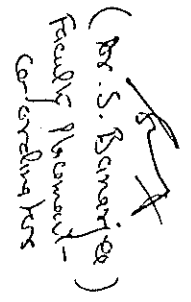 (Dr. S. Banerjee)
Faculty Placement-
Co-ordinator